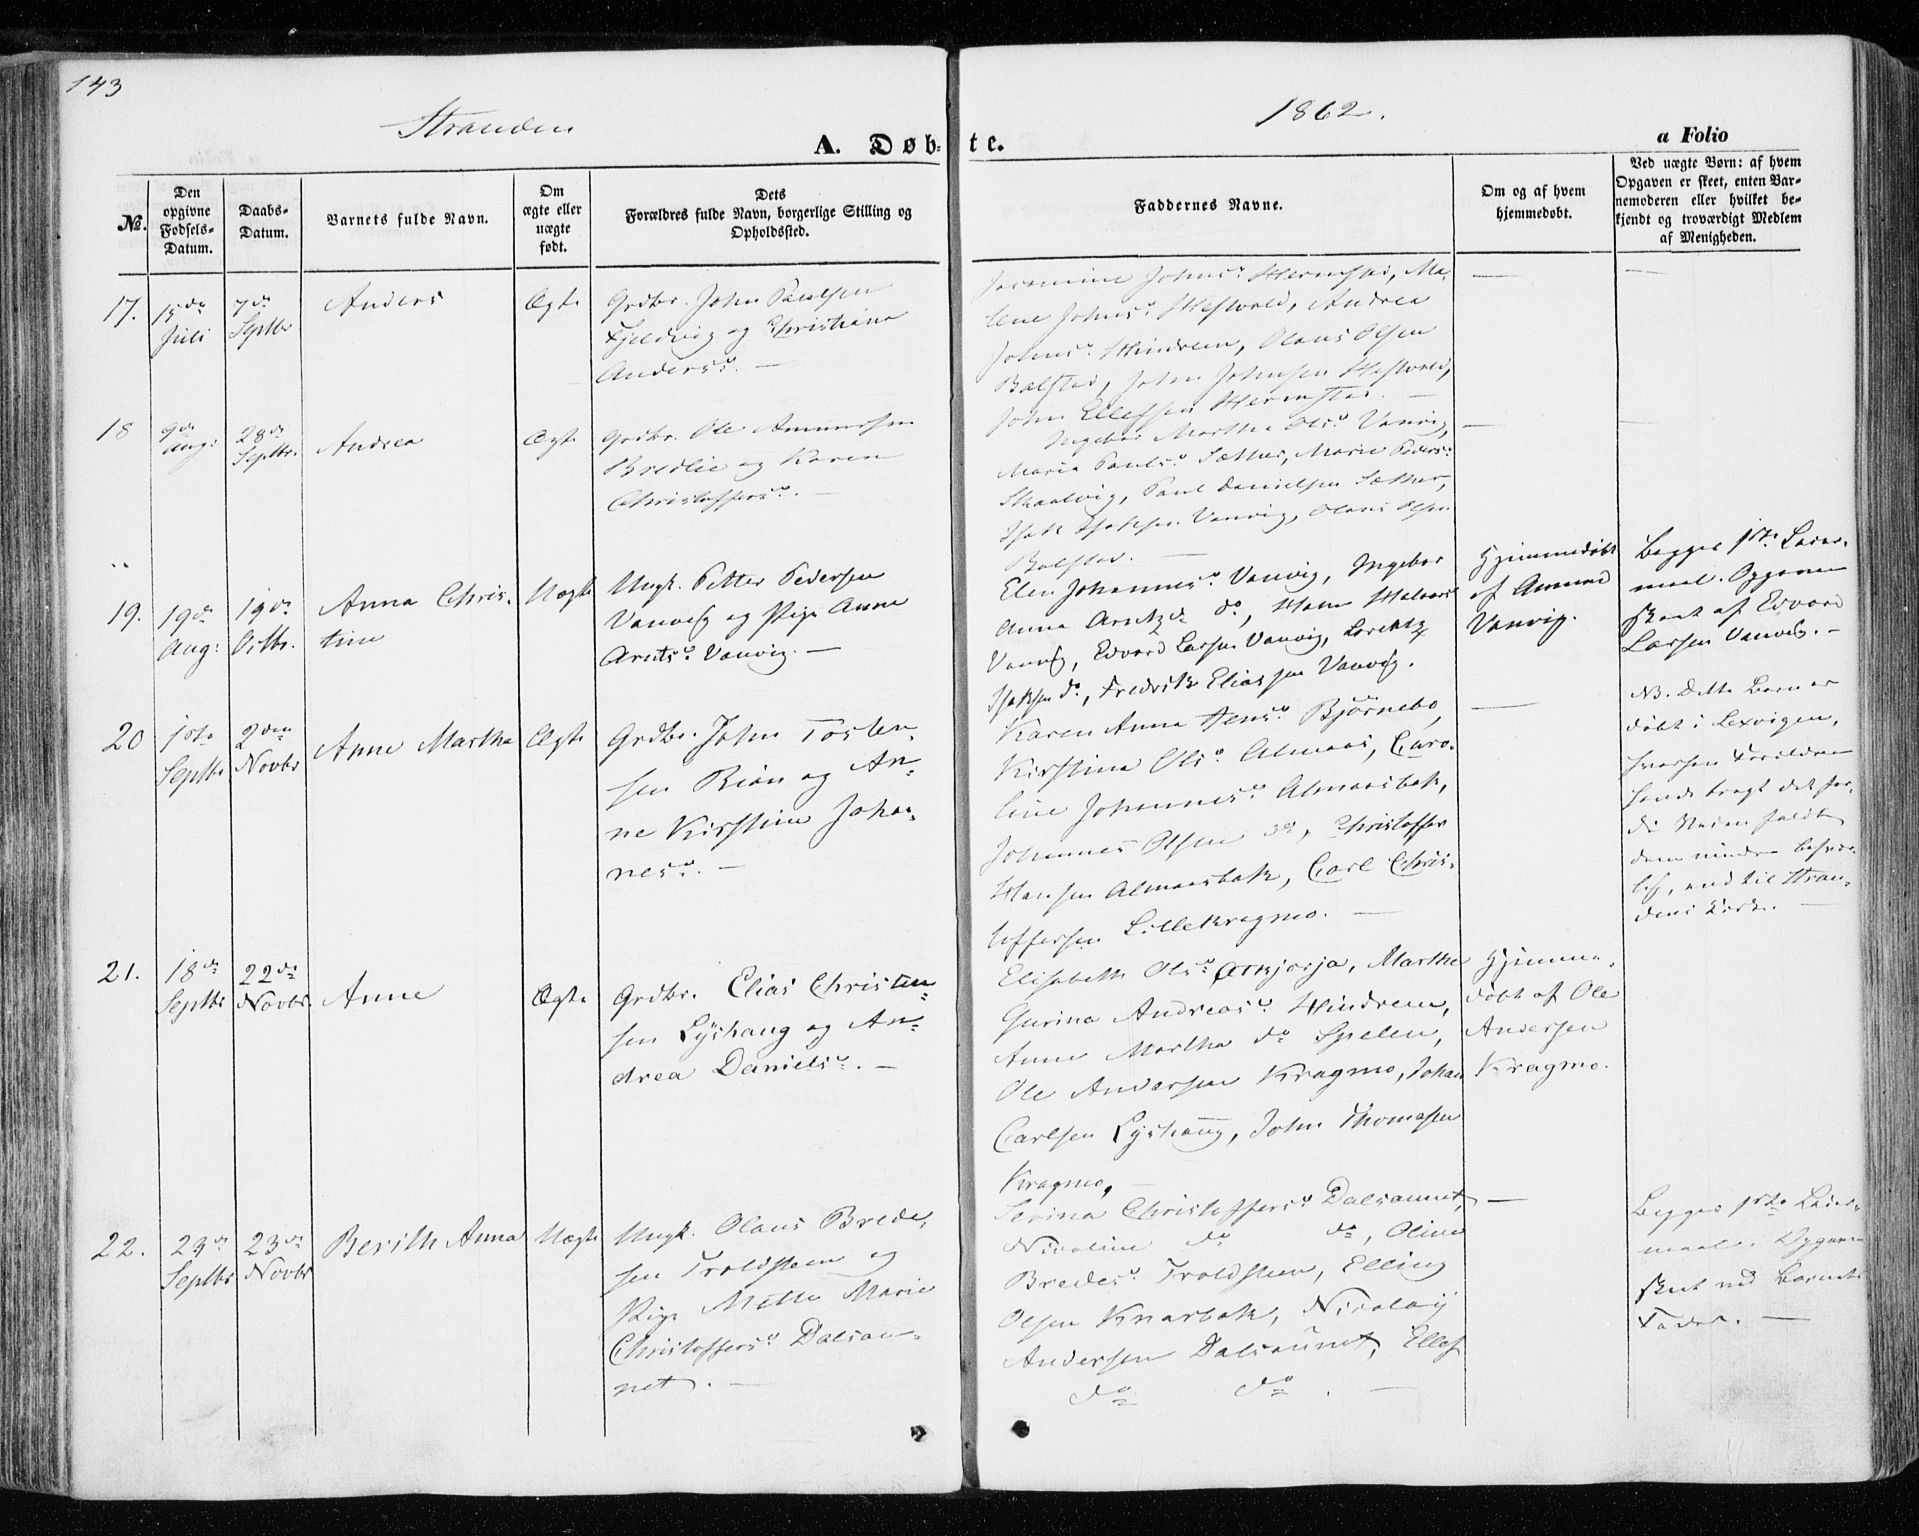 143
Stranden
1862.
A. Døbte.
a Folio
No.
Den opgivne Fødsels-Datum.
Daabs-Datum.
Barnets fulde Navn.
Om ægte eller uægte født.
Dets Forældres fulde Navn, borgerlige Stilling og Opholdssted.
Faddernes Navne.
Om og af hvem hjemmedøbt.
Ved uægte Børn: af hvem Opgaven er skeet, enten Barnemoderen eller hvilket bekjendt og troværdigt Medlem af Menigheden.
17.
15de Juli
7de Septbr
Anders
Ægte
Grdbr. John Paulsen
Fjeldvig og Christiana
Andersd. —
Johns. Hermstad, Ma-
lene Johns. Hestvold, Andrea
Johns. Hindrem, Olaus Olsen
Balstad, John Johnsen Hestvold,
John Ellefsen Hermstad. —
—
—
18
9de Aug:
28de Septbr.
Andrea
Ægte
Grdbr. Ole Amundsen
Bredlie og Karen
Christoffers. —
Ingebor Martha Ols. Vanvig,
Maria Pauls. Sæther, Marie Peders.
Skaalvig, Paul Danielsen Sæther,
Isak Isaksen Vanvig, Olaus Olsen
Balstad. —
—
—
19.
19de Aug:
19de Octbr.
Anna Chris-
tine
Uægte
Ungk. Petter Pedersen
Vanvig og Pige Anne
Arnts. Vanvig. —
Elen Johannes. Vanvig, Ingebor
Anna Arntzd. do, Hans Halvors
Vanvig, Edvard Larsen Vanvig, Lorentz
Isaksen do, Fredrik Eliassen Vanvig.
Hjemmedøbt
af Amund
Vanvig.
Begges 1ste Leier-
maal. Opgaven
skeet af Edvard
Larsen Vanvig. —
20
1ste Septbr
2den Novbr
Anne Martha
Ægte
Grdbr. John Tosten-
sen Reian og An-
ne Kirstine Johan-
nes. —
Karen Anna Jens. Bjørnebo,
Kirstina Ols. Almaas, Caro-
line Johannes. Almaasbak,
Johannes Olsen do, Christoffer
Hansen Almaasbak, Carl Chris-
toffersen Lillekragmo. —
—
NB. Dette Barn er
døbt i Lexvigen,
hvorhen Forældrene
havde bragt det for-
di Veien faldt
dem mindre besvær-
lig, end til Stran-
dens Kirke. —
21.
18de Septbr
22de Novbr.
Anne
Ægte
Grdbr. Elias Christen-
sen Lyshaug og An-
drea Daniels. —
Elisabeth Ols. Askjorja, Marthe
Gurina Andreas. Hindrem,
Anne Martha do Spelen,
Ole Andersen Kragmo, Johan
Carlsen Lyshaug, John Thomasen
Kragmo. —
Hjemme-
døbt af Ole
Andersen
Kragmo.
22.
23de Septbr
23de Novbr
Berith Anna
Uægte
Ungk. Olaus Brede-
sen Troldsteen og
Pige Mette Marie
Christoffers. Dalsau-
net. —
Serina Christoffers. Dalsaunet,
Nicoline do do, Oline
Bredes. Troldsteen, Elling
Olsen Knarbak, Nicolay
Andersen Dalsaunet, Ellef
do do. —
—
Begges 1ste Leier-
maal. Opgaven
skeet ved Barnets
Fader. —